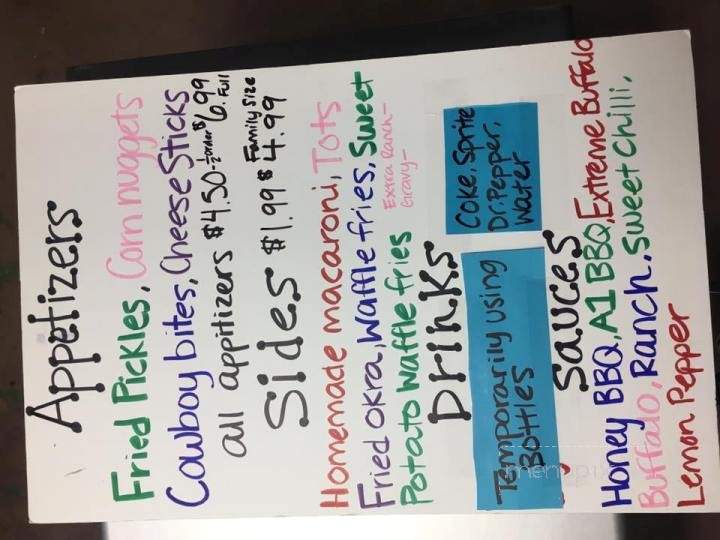 Appetizers
Fried Pickles, Corn nuggets
Cowboy bites, Cheese Sticks
all appitizers $4.50-½ order $6.99 Full
Sides $1.99 $4.99 Family Size
Homemade macaroni, Tots
Fried okra, Waffle fries, Sweet
Potato Waffle fries Extra Ranch-
Gravy-
Drinks
Temporarily using
Bottles
Coke, Sprite
Dr. Pepper,
Water
Sauces
Honey BBQ, A1 BBQ, Extreme Buffalo
Buffalo, Ranch, Sweet Chilli,
Lemon Pepper
menupix